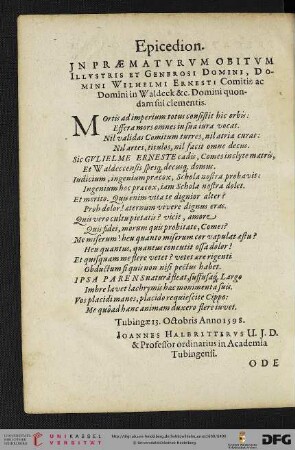 Epicedion.
IN PRÆMATVRVM OBITVM
ILLVSTRIS ET GENEROSI DOMINI, DO-
MINI WILHELMI ERNESTI Comitis ac
Domini in Waldeck &c. Domini quon-
dam sui clementis.
Mortis ad imperium totus consistit hic orbis:
Effera mors omnes in sua iura vocat.
Nil validas Comitum turres, nil atria curat:
Nil artes, titulos, nil facit omne decus.
Sic GVLIELME ERNESTE cadis, Comes inclyte matris,
Et Waldeccensis spes, decusq; domus.
Iudicium, ingenium præcox, Schola nostra probavit:
Ingenium hoc præcox, iam Schola nostra dolet.
Et merito. Quis enim vita te dignior alter?
Proh dolor! æternùm vivere dignus eras.
Quis vero cultu pietatis? vicit, amore
Quis fidei, morum quis probitate, Comes?
Me miserum! heu quanto miserum cor vapulat æstu?
Heu quantus, quantus concutit ossa dolor!
Et quisquam me flere vetet? vetet ære rigenti
Obductum si quis non nisi pectus habet.
IPSA PARENS natura fleat, suffusaq; Largo
Imbre lavet lachrymis hæc monimenta suis.
Vos placidi manes, placido requiescite Cippo:
Me quoad hanc animam duxero flere iuvet.
Tubing æ 13. Octobris Anno 1598.
IOANNES HALBRITTERVS U. J. D.
& Professor ordinarius in Academia
Tubingensi.
ODE
UNIKASSEL
VERSITÄT
DFG